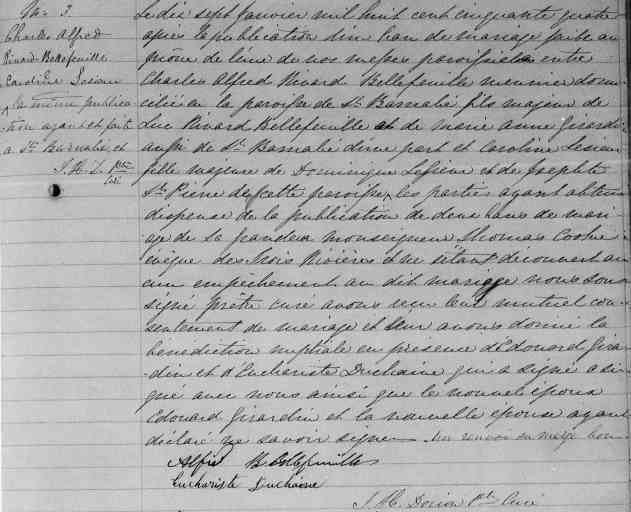 No 3.
Charles Alfred
Rivard Bellefeuille
Caroline Lesieur
la même publica
tion ayant été faite
à St Barnabé, et
J. H. D. Ptre
Curé
Le dix sept Janvier mil huit cent cinquante quatre
après la publication d'un ban de mariage faite au
prône de l'une de nos messes paroissiales entre
Charles Alfred Rivard Bellefeuille meunier domi
cilié en la paroisse de St Barnabé fils majeur de
Luc Rivard Bellefeuille et de marie anne Girardin
aussi de St Barnabé d'une part et Caroline Lesieur
fille majeure de Dominique Lesieur et de Josephte
St Pierre de cette paroisse, les parties ayant obtenu
dispense de la publication de deux bans de mari-
age de Sa grandeur monseigneur Thomas Cooke
évêque des trois Rivières et ne s'étant découvert au
cun empêchement au dit mariage nous sous
signé prêtre curé avons reçu leur mutuel con-
sentement de mariage et leur avons donné la
bénédiction nuptiale en présence d'Edouard Girar
-din et d'Euchariste Duchaine qui a signé a si-
gné avec nous ainsi que le nouvel époux
Edouard Girardin et la nouvelle épouse ayant
déclaré ne savoir signer Un renvoi en marge bon
Alfred R Bellefeuille
Euchariste Duchaine
J. H. Dorion Ptre Curé